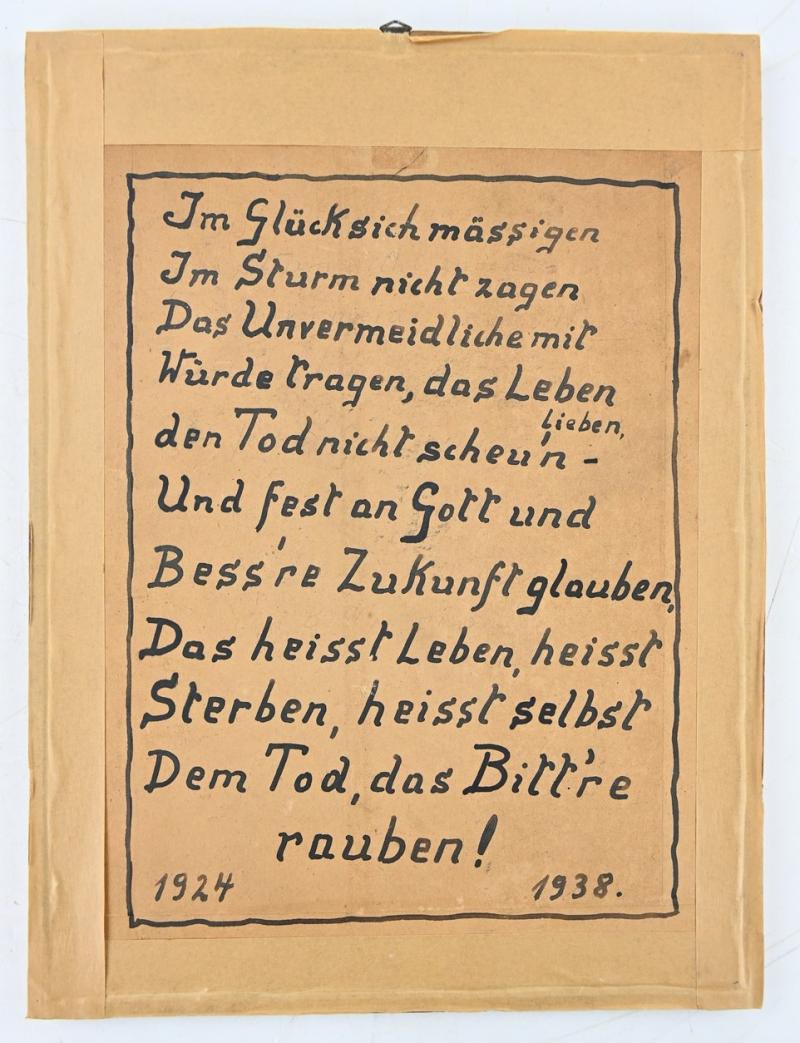 Im Glück sich mässigen
Im Sturm nicht zagen
Das Unvermeidliche mit
Würde tragen, das Leben
lieben,
den Tod nicht scheu'n -
Und fest an Gott und
Bess're Zukunft glauben,
Das heisst Leben, heisst
Sterben, heisst selbst
Dem Tod, das Bitt're
rauben!
1924 1938.